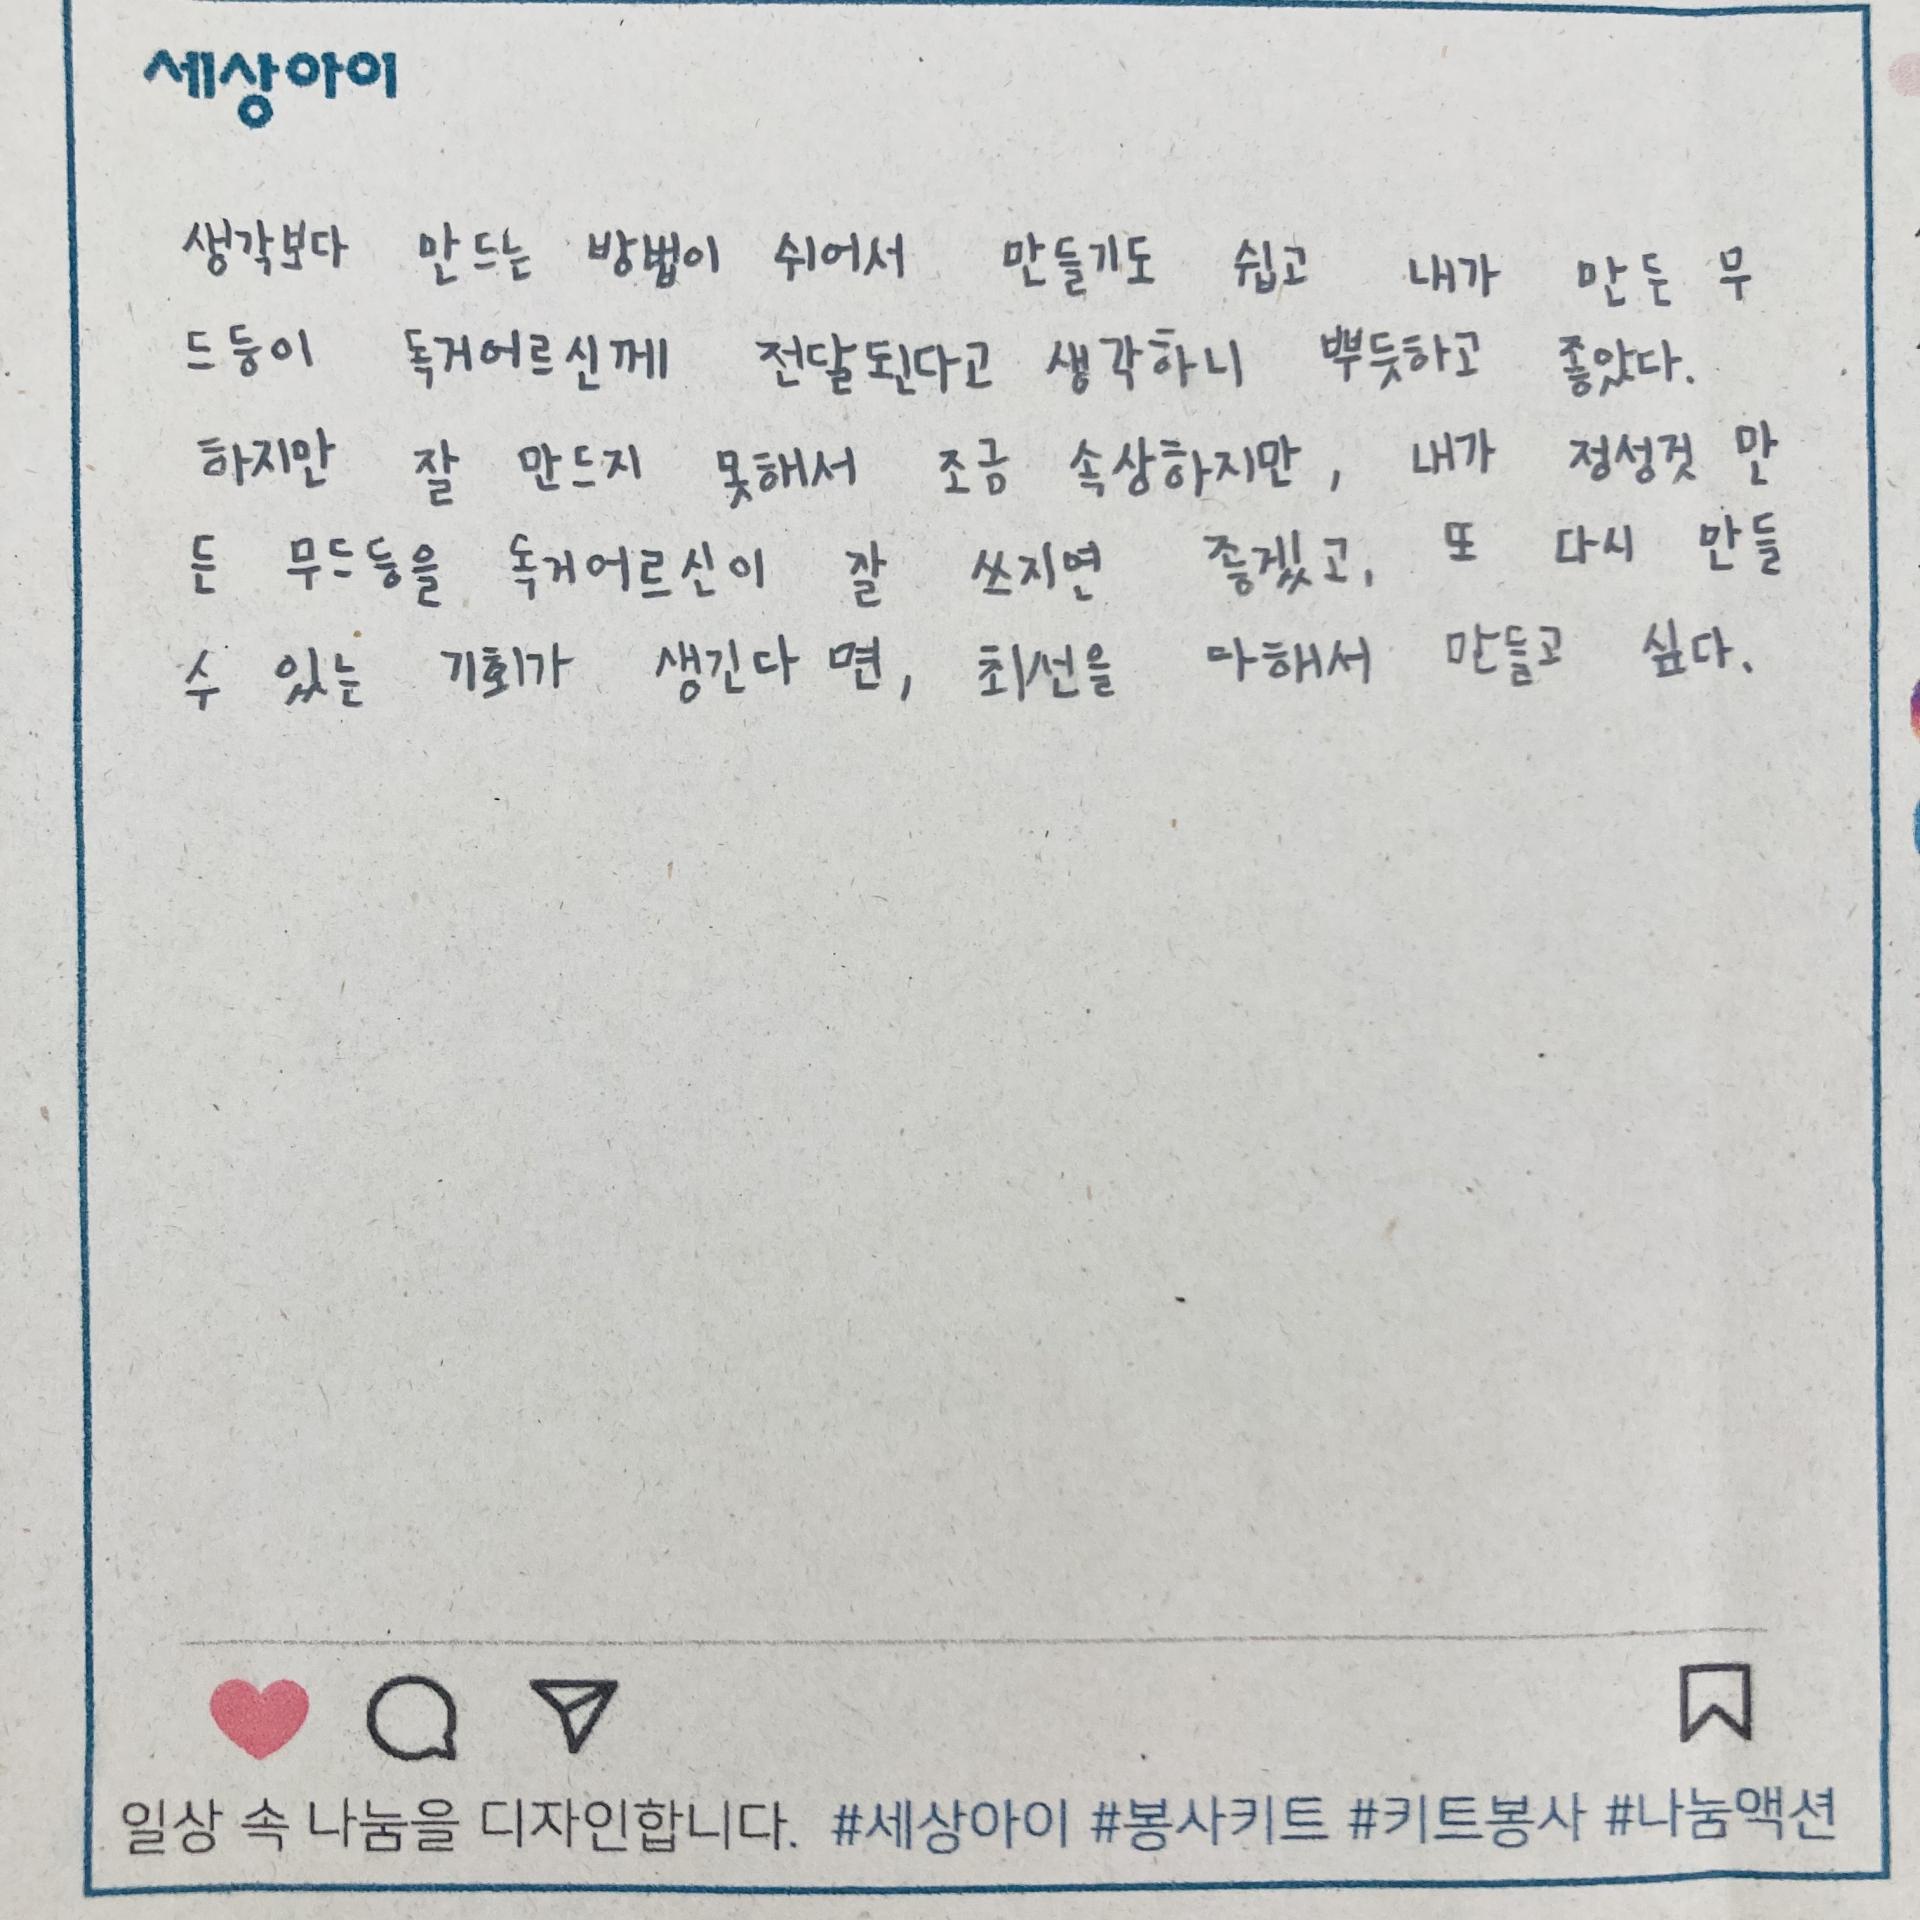 세상아이
생각보다 만드는 방법이 쉬어서 만들기도 쉽고 내가 만든 무
드등이 독거어르신께 전달된다고 생각하니 뿌듯하고 좋았다.
하지만 잘 만드지 못해서 조금 속상하지만, 내가 정성것 만
든 무드등을 독거어르신이 잘 쓰지면 좋겠고, 또 다시 만들
수 있는 기회가 생긴다면, 최선을 다해서 만들고 싶다.
일상 속 나눔을 디자인합니다. #세상아이 #봉사키트 #키트봉사 #나눔액션